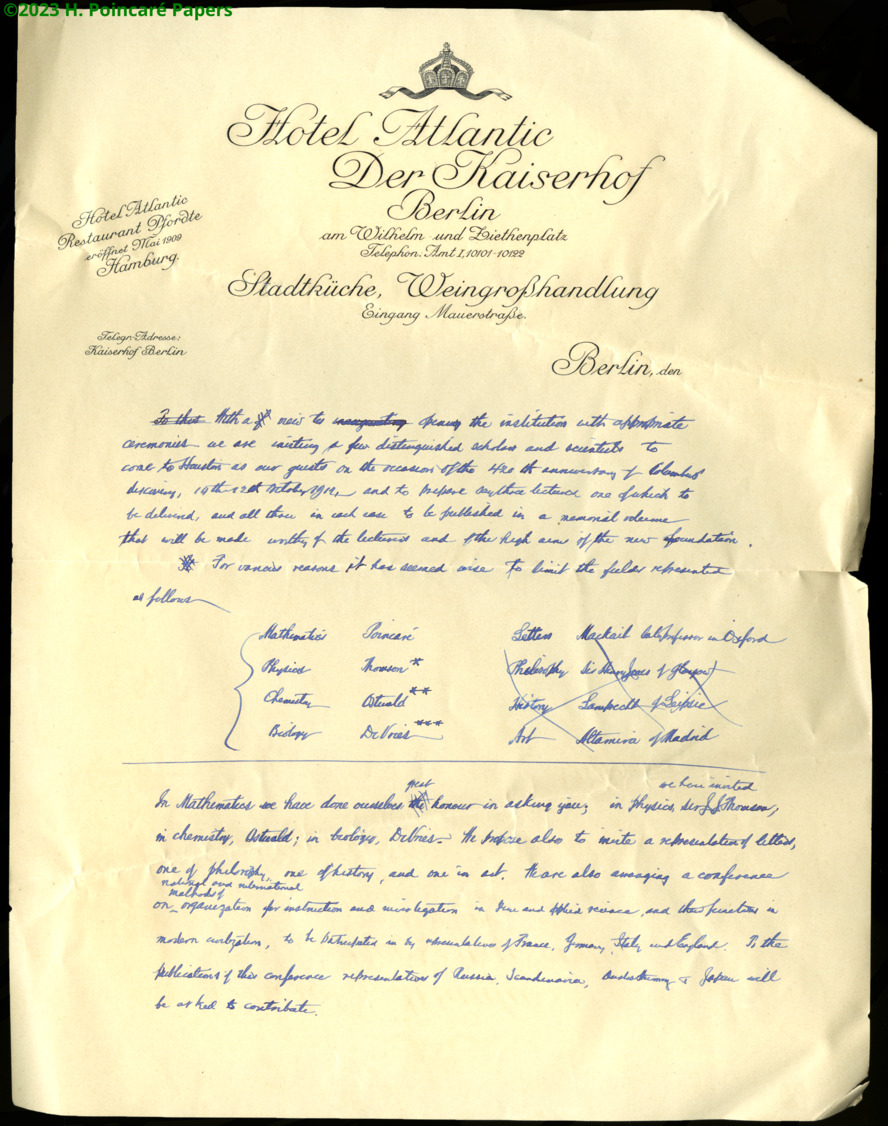 ©2023 H. Poincaré Papers
Hotel Atlantic
Der Kaiserhof
Berlin
am Wilhelm- und Ziethenplatz
Telephon: Amt I, 10101-10122
Hotel Atlantic
Restaurant Pfordte
eröffnet Mai 1909
Hamburg.
Stadtküche, Weingroßhandlung
Eingang Mauerstraße.
Telegr.-Adresse:
Kaiserhof Berlin
Berlin, den
To that With a view to inaugurating opening the institution with appropriate
ceremonies we are inviting a few distinguished scholars and scientists to
come to Houston as our guests on the occasion of the 420th anniversary of Columbus'
discovery, 12th October 1912, and to prepare three lectures one of which to
be delivered, and all three in each case to be published in a memorial volume
that will be made worthy of the lectures and of the high aims of the new foundation.
For various reasons it has seemed wise to limit the fields represented
as follows
Mathematics Poincaré
Physics Thomson *
Chemistry Ostwald **
Biology De Vries ***
Letters Mackail late professor in Oxford
Philosophy Sir Henry Jones of Glasgow
History Lamprecht of Leipsic
Art Altamira of Madrid
great
we have invited
In Mathematics we have done ourselves the honour in asking you; in Physics, Sir J J Thomson,
in chemistry, Ostwald; in biology, DeVries. We propose also to invite a representative of letters,
one of philosophy, one of history, and one in art. We are also arranging a conference
national and international
methods of
on organization for instruction and investigation in pure and applied science, and their functions in
modern civilization, to be participated in by representatives of France, Germany, Italy and England. To the
publications of this conference representatives of Russia, Scandinavia, & Japan will
be asked to contribute.